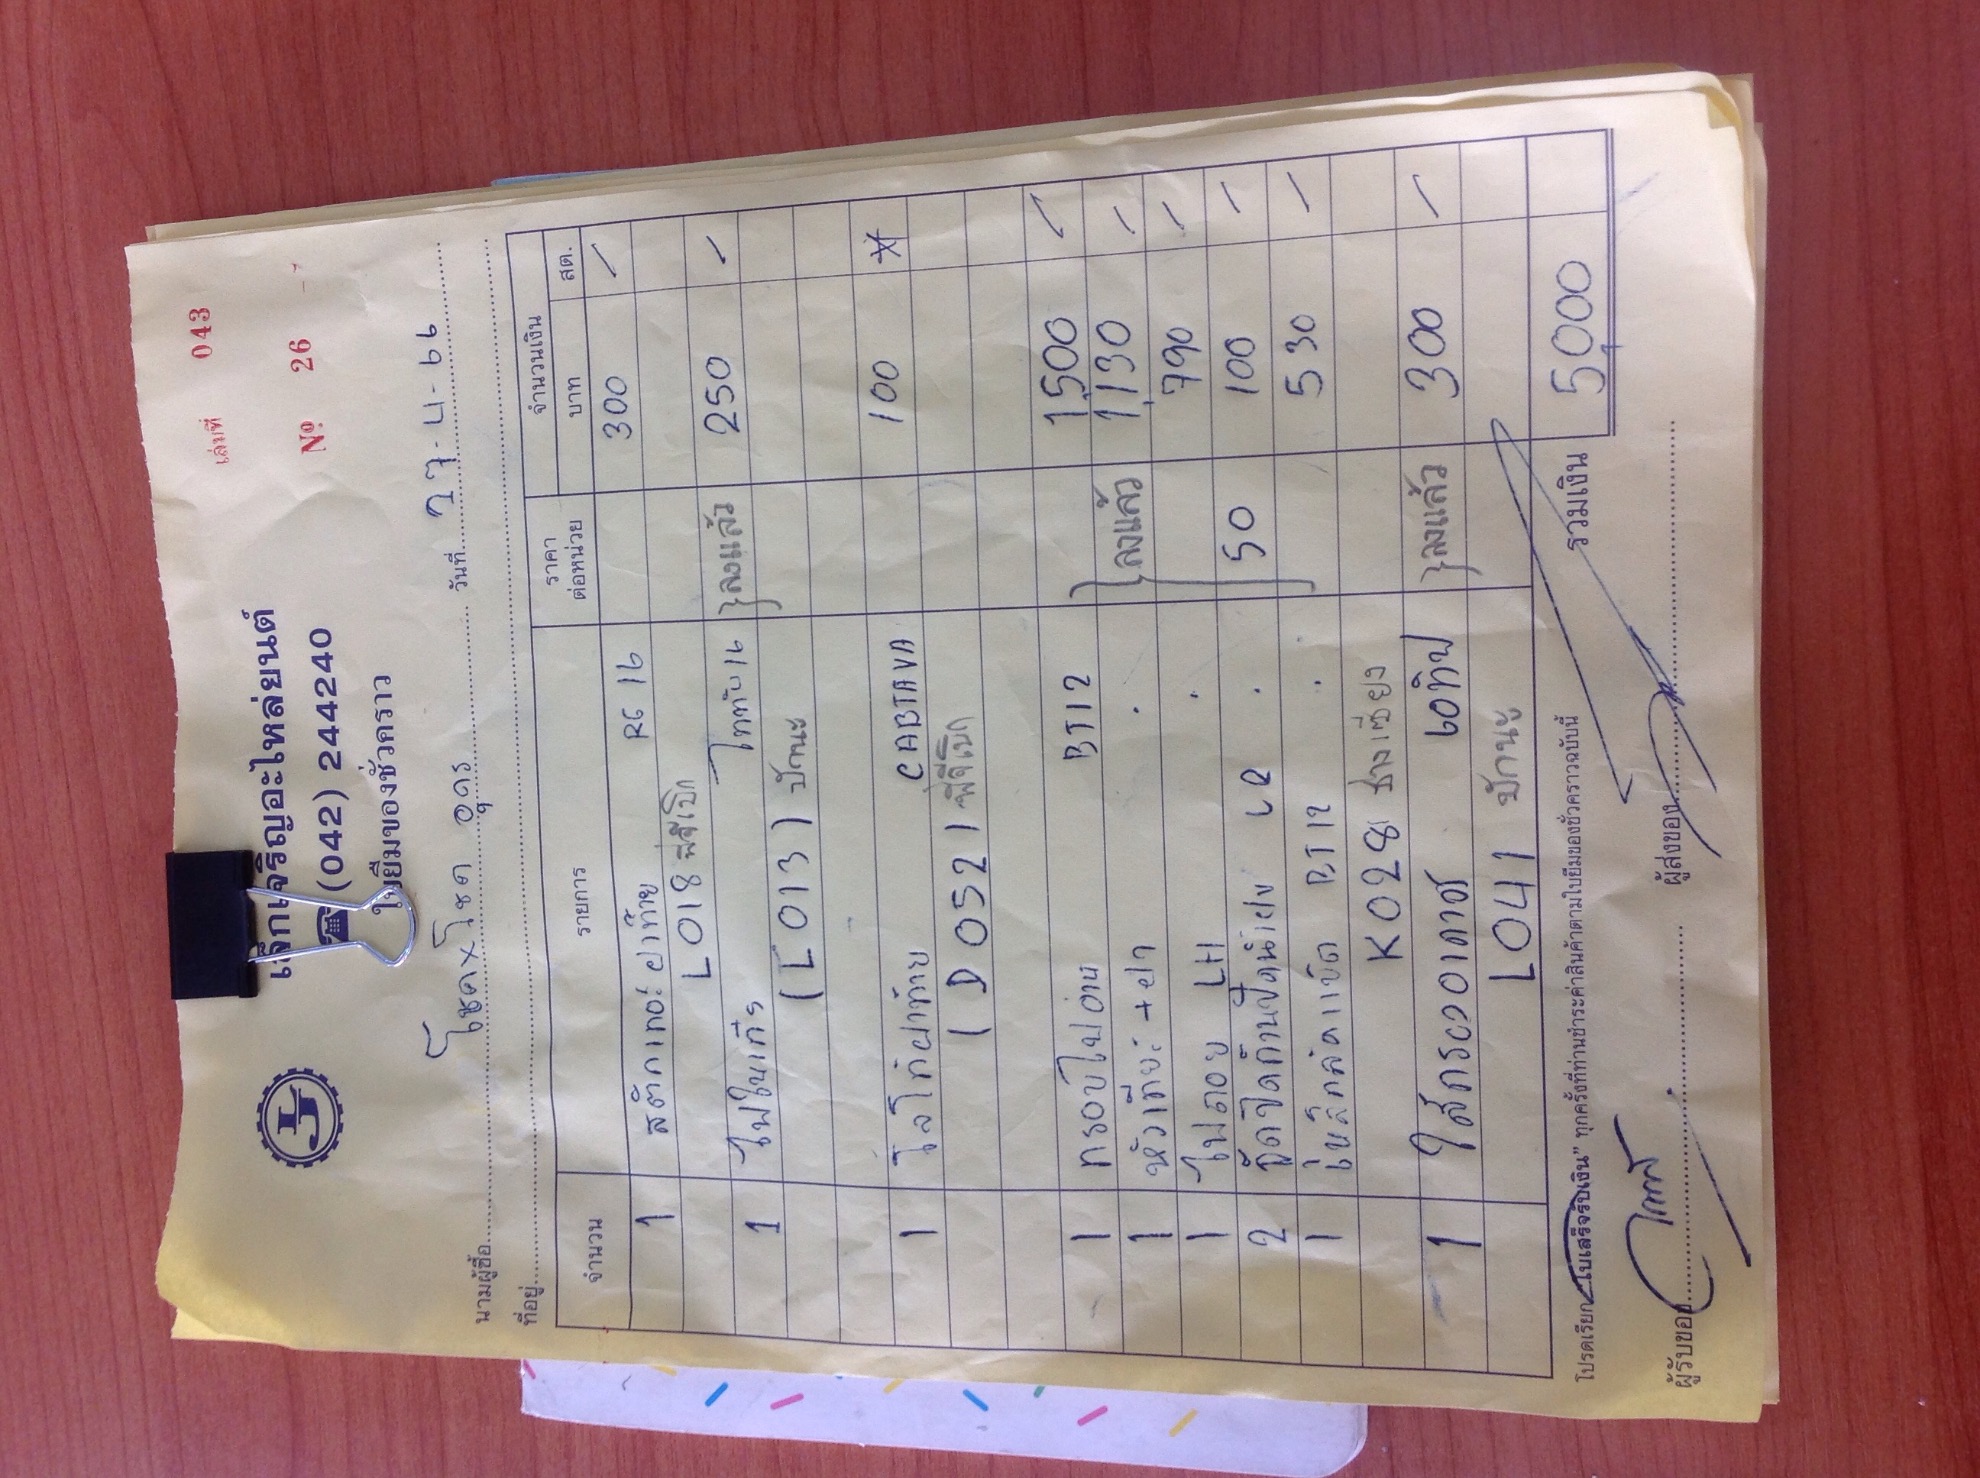 เล่มที่ 043
№ 26
เล็กเจริญอะไหล่ยนต์
☎ (042) 244240
ใบยืมของชั่วคราว
LJ
นามผู้ซื้อ โชคxโชค อุดร วันที่ 27-4-66
ที่อยู่
จำนวน รายการ ราคาต่อหน่วย จำนวนเงิน
บาท สต.
1 สติกเกอร์ฝาท้าย RG 16 300 /
L018 พี่จีเบิก
1 ไฟในเก๋ง ไททัน 16 }ลงแล้ว 250 /
(L013) ปักนะ
1 โลโก้ฝาท้าย CABTAVA 100
(D052) พี่จีเบิก
1 กรอบไฟอ่าน BT12 1,500 /
1 หัวเทียน +ฝา . }ลงแล้ว 1,130 /
1 ไฟลอย LH . 790 /
2 . 50 100 /
1 BT12 . 530 /
K028 ช่างเชียง
1 60ทิป }ลงแล้ว 300 /
L041 ปักนะ
รวมเงิน 5,000
โปรดเรียก "ใบเสร็จรับเงิน" ทุกครั้งที่ท่านชำระค่าสินค้าตามใบยืมของชั่วคราวฉบับนี้
ผู้รับของ ผู้ส่งของ